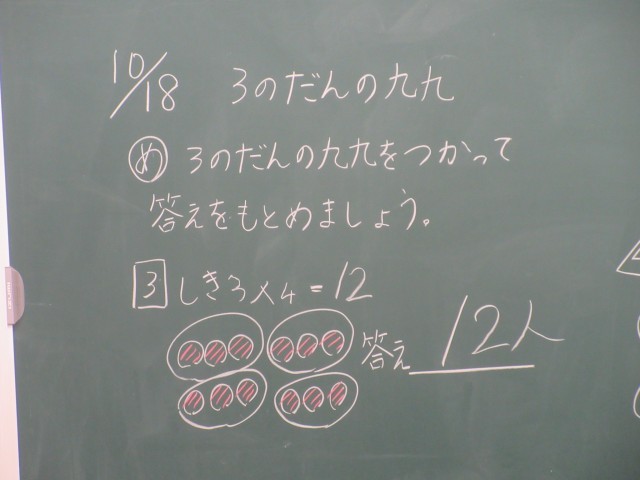 10/18 3のだんの九九
め 3のだんの九九をつかって
答えをもとめましょう。
3 しき3×4=12
答え 12人